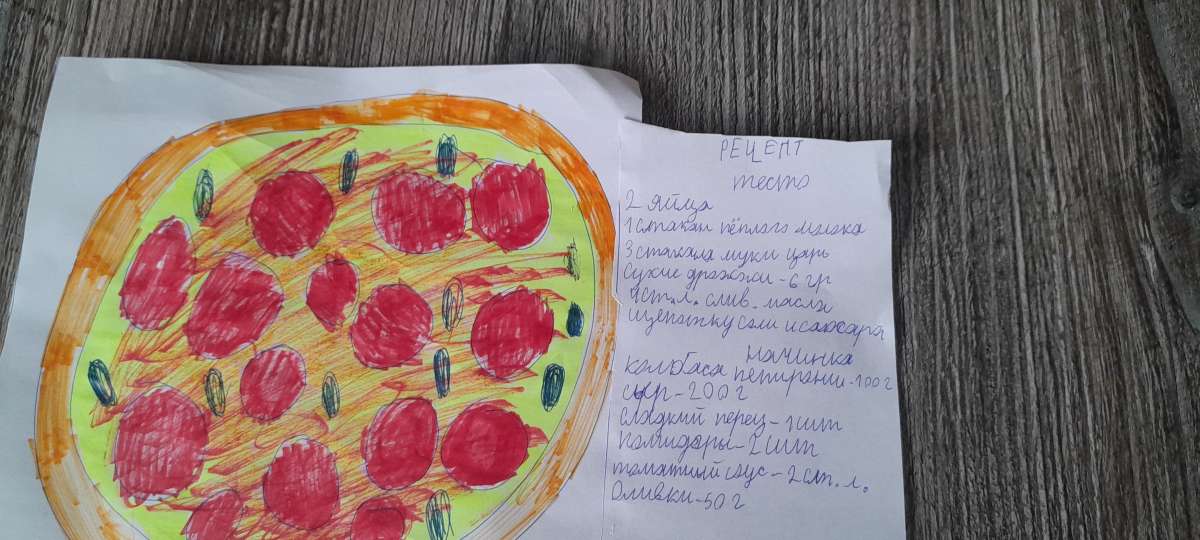 РЕЦЕПТ
тесто
2 яйца
1 стакан тёплого молока
3 стакана муки царь
Сухие дрожжи - 6 гр
ст. л. слив. масла
щепотку соли и сахара
начинка
колбаса пепирони - 100 г
сыр - 200 г
сладкий перец - 1 шт
помидоры - 2 шт
томатный соус - 2 ст. л.
Оливки - 50 г